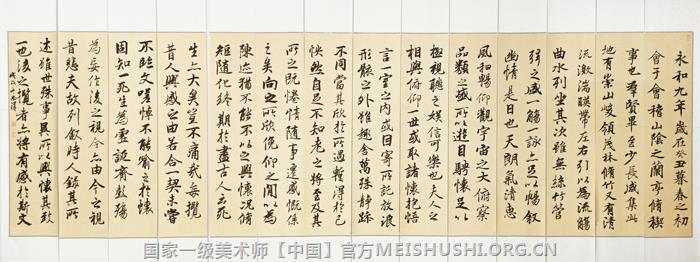 永和九年歲在癸丑暮春之初
會于會稽山陰之蘭亭脩稧
事也羣賢畢至少長咸集此
地有崇山峻領茂林脩竹又有清
流激湍暎帶左右引以為流觴
曲水列坐其次雖無絲竹管
弦之盛一觴一詠亦足以暢敘
幽情是日也天朗氣清惠
風和暢仰觀宇宙之大俯察
品類之盛所以遊目騁懷足以
極視聽之娛信可樂也夫人之
相與俯仰一世或取諸懷抱悟
言一室之內或因寄所託放浪
形骸之外雖趣舍萬殊靜躁
不同當其欣於所遇暫得於己
怏然自足不知老之將至及其
所之既惓情隨事遷感慨係
之矣向之所欣俛仰之間以為
迹猶不能不以之興懷況脩
短隨化終期於盡古人云死
生亦大矣豈不痛哉每攬
昔人興感之由若合一契未嘗
不臨文嗟悼不能喻之於懷
固知一死生為虛誕齊彭殤
為妄作後之視今亦由今之視
昔悲夫故列敘時人錄其所
述雖世殊事異所以興懷其致
一也後之攬者亦將有感於斯文
国家一级美术师【中国】官方MEISHUSHI.ORG.CN